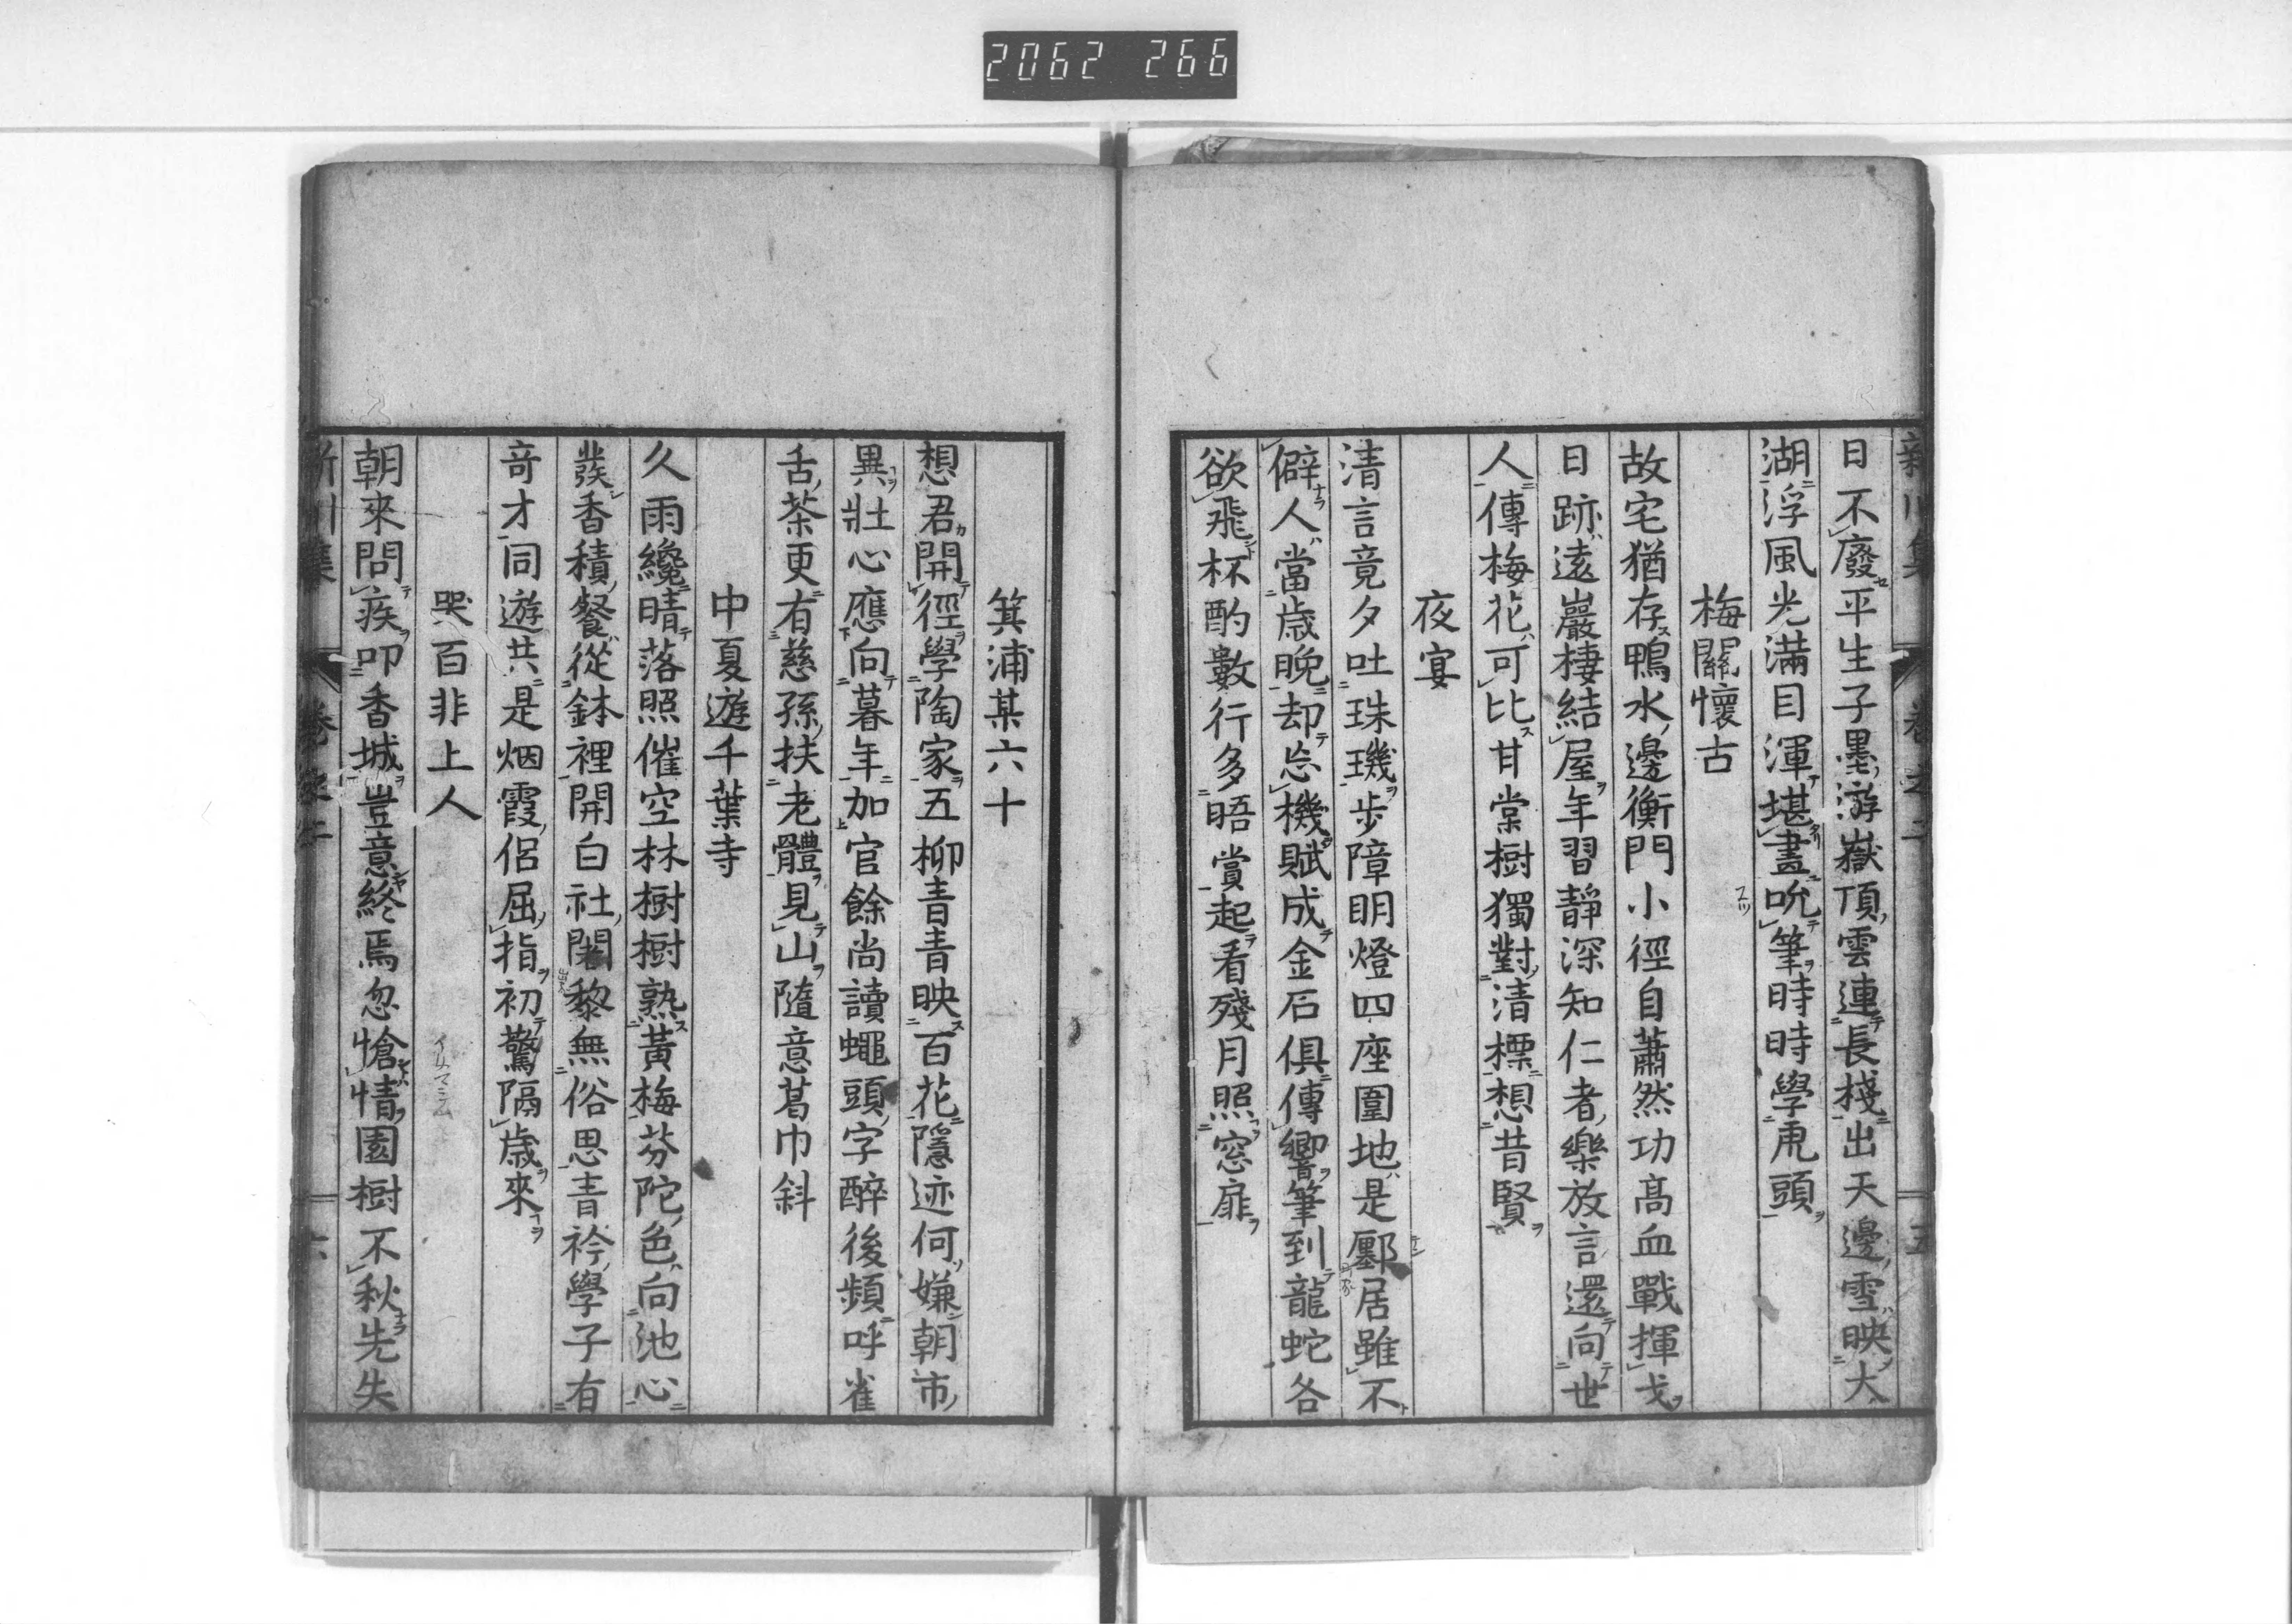 2062 266
日不廢平生子墨游嶽頂雲連長棧出天邊雪映大
湖浮風光滿目渾堪畫吮筆時時學虎頭
梅關懷古
故宅猶存鴨水邊衡門小徑自蕭然功髙血戰揮戈
日跡遠巖棲結屋年習靜深知仁者樂放言還向世
人傳梅花可比甘棠樹獨對清標想昔賢
夜宴
清言竟夕吐珠璣步障明燈四座圍地是鄽居雖不
僻人當歳晚却忘機賦成金石俱傳響筆到龍蛇各
欲飛杯酌數行多晤賞起看殘月照窓扉
箕浦某六十
想君開徑學陶家五柳青青映百花隱迹何嫌朝市
異壯心應向暮年加官餘尚讀蠅頭字醉後頻呼雀
舌茶更有慈孫扶老體見山隨意葛巾斜
中夏遊千葉寺
久雨纔晴落照催空林樹樹熟黃梅芬陀色向池心
發香積餐從鉢裡開白社闍黎無俗思青衿學子有
竒才同遊共是烟霞侶屈指初驚隔歳來
哭百非上人
朝來問疾叩香城豈意終焉忽愴情園樹不秋先失
卷之二 六